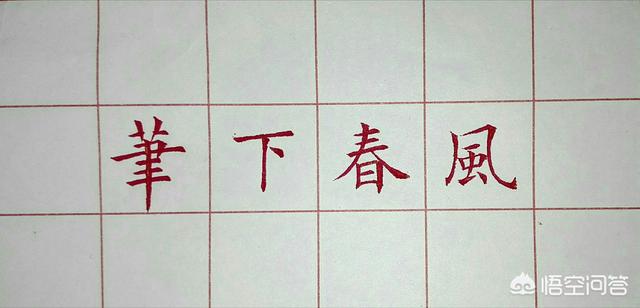 筆下春風
悟空问答